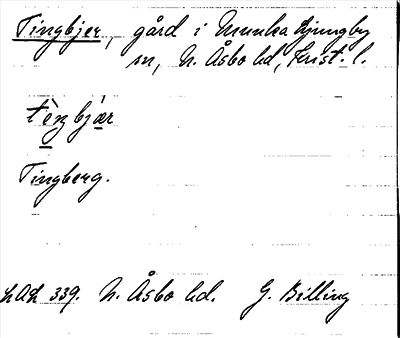 Tingbjer, gård i Munka Ljungby
sn, N. Åsbo hd, Krist. l.
tèŋbjær
Tingberg.
LAL 339. N. Åsbo hd. G. Billing